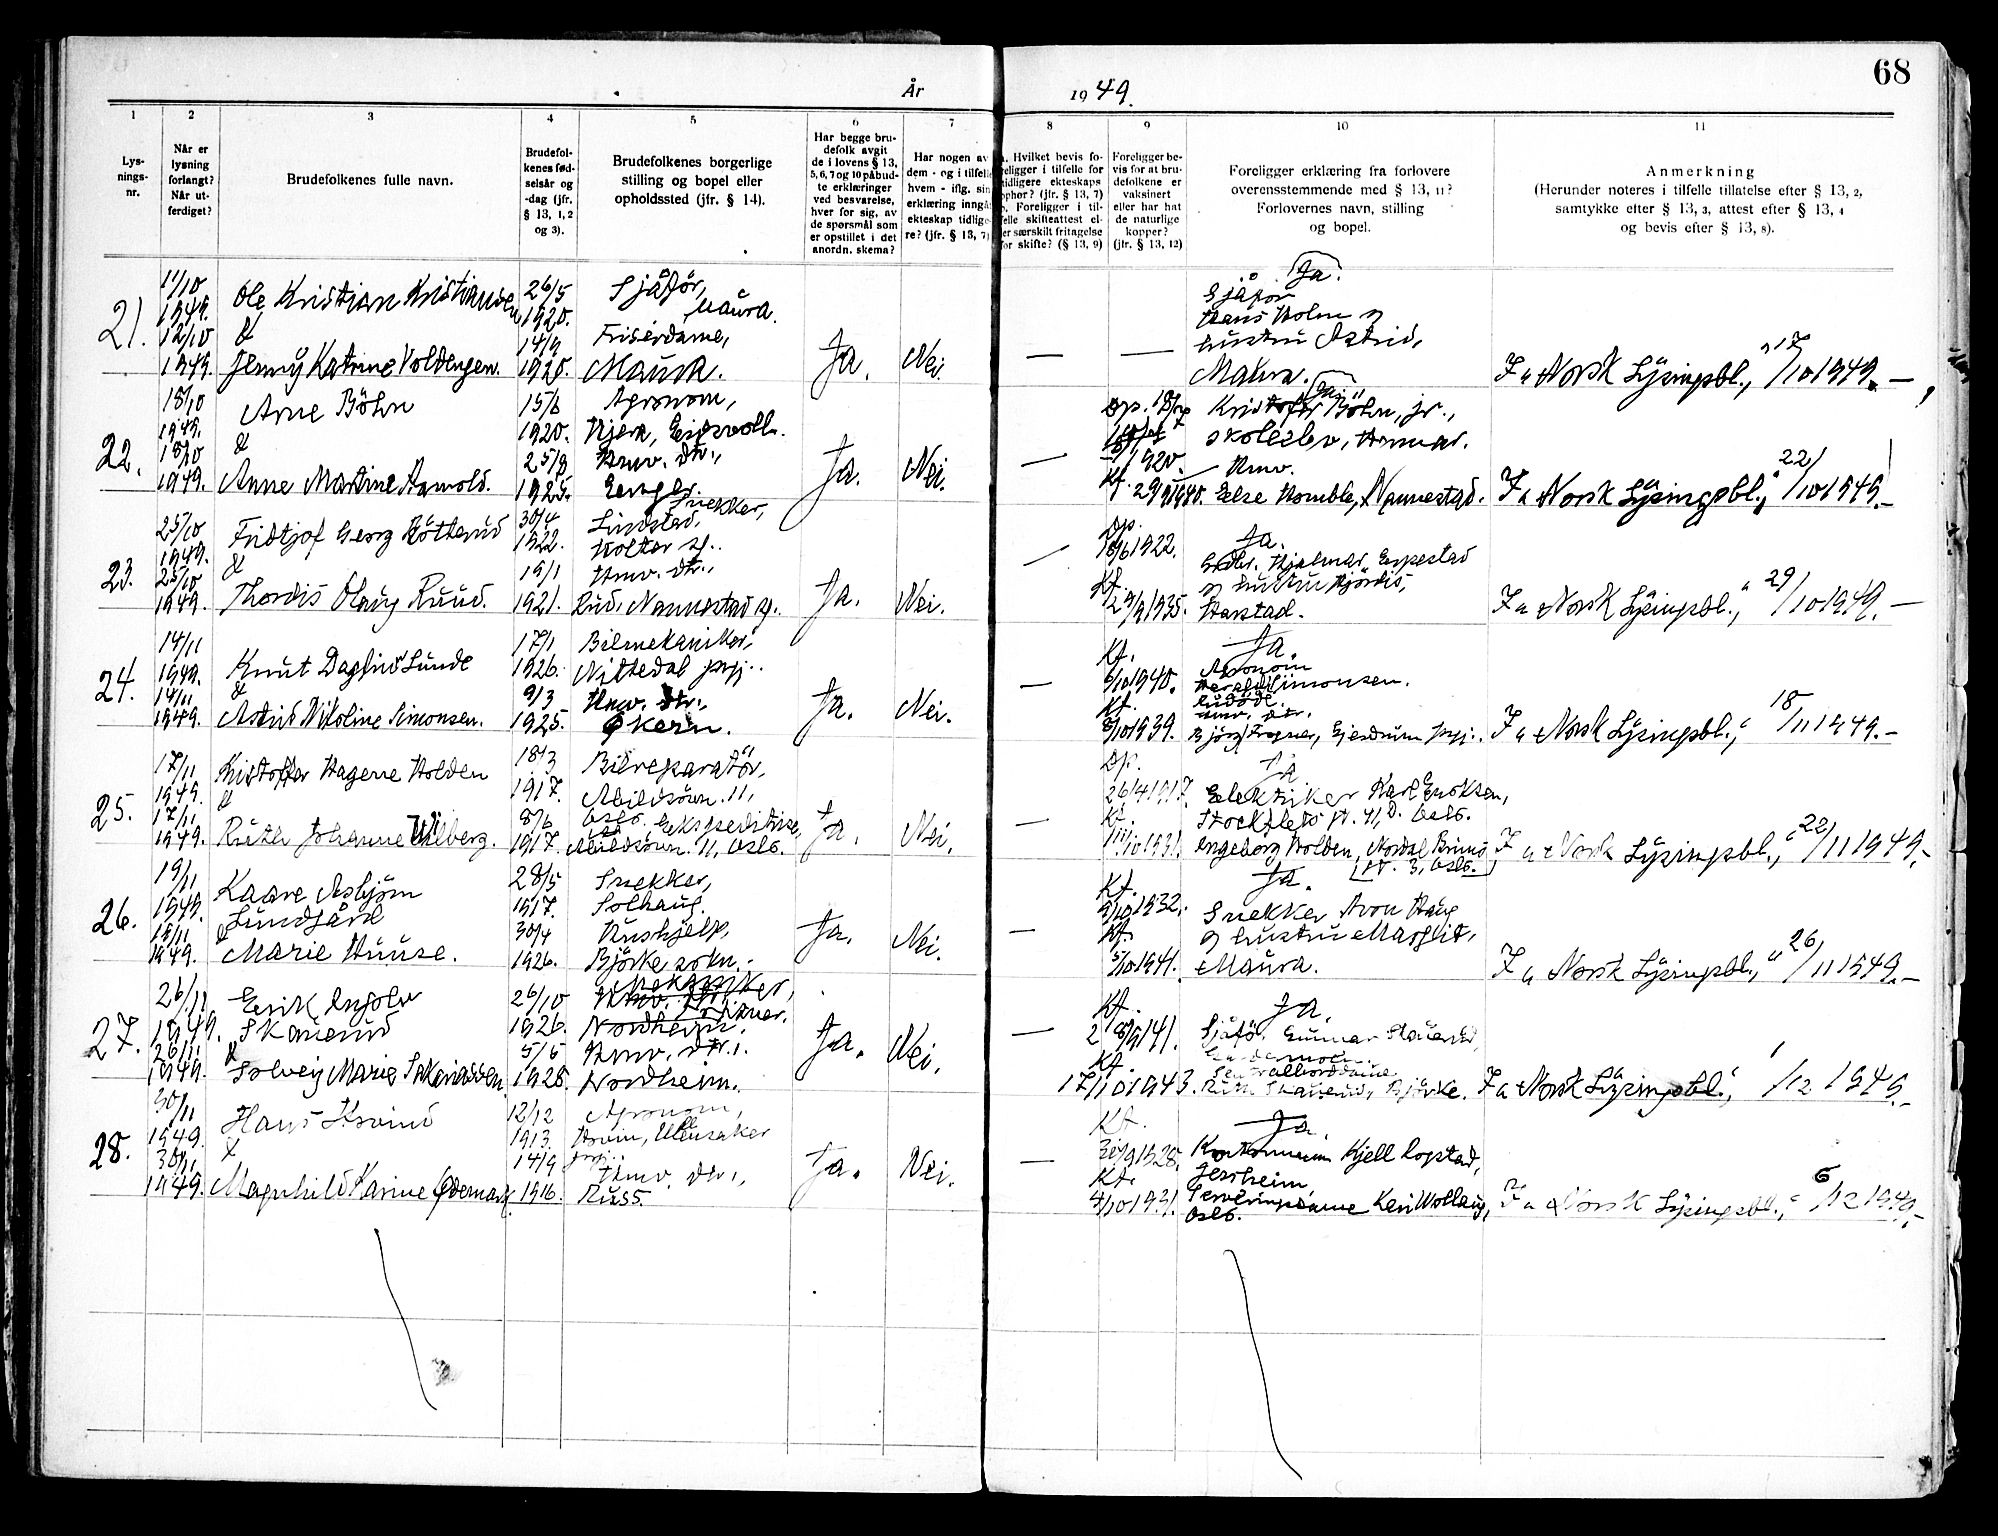 68
År 1949.
1 2 3 4 5 6 7 8 9 10 11
Lys-
nings-
nr.
Når er
lysning
forlangt?
Når ut-
ferdiget?
Brudefolkenes fulle navn.
Brudefol-
kenes fød-
selsår og
-dag (jfr.
§ 13, 1, 2
og 3).
Brudefolkenes borgerlige
stilling og bopel eller
opholdssted (jfr. § 14).
Har begge bru-
defolk avgit
de i lovens § 13,
5, 6, 7 og 10 påbud-
te erklæringer
ved besvarelse,
hver for sig, av
de spørsmål som
er opstillet i det
anordn. skema?
Har nogen av
dem - og i tilfelle
hvem - iflg. sin
erklæring inngå
ekteskap tidlige-
re? (jfr. § 13, 7)
Hvilket bevis fo-
religger i tilfelle for
tidligere ekteskaps
ophør? (jfr. § 13, 7)
b. Foreligger i til-
felle skifteattest el-
ler særskilt fritagelse
for skifte? (§ 13, 9)
Foreligger be-
vis for at bru-
defolkene er
vaksinert
eller har hat
de naturlige
kopper?
(jfr. § 13, 12)
Foreligger erklæring fra forlovere
overensstemmende med § 13, 11?
Forlovernes navn, stilling
og bopel.
Anmerkning
(Herunder noteres i tilfelle tillatelse efter § 13, 2,
samtykke efter § 13, 3, attest efter § 13, 4
og bevis efter § 13, 8).
21.
11/10
1949.
12/10
1949.
Ole Kristian Kristiansen
&
Jenny Katrine Voldengen.
26/5
1920.
14/9
1920.
Sjåfør,
Maura.
Frisørdame,
Maura.
Ja.
Nei.
—
—
Ja.
Sjåfør
Hans Holm og
hustru Astrid,
Maura.
I „Norsk Lysingsbl.," 17/10 1949.—
22.
18/10
1949.
18/10
1949.
Arne Böhn
&
Anne Martine Harnold.
15/6
1920.
25/8
1925.
Agronom,
Hjera, Eidsvoll.
Hmv. dtr.,
Enger.
Ja.
Nei.
—
Dp.
1920.
Kf.
Ja
Kristoffer Böhn, jr.,
skoleelev,
Hmv.
Else Homble, Nannestad.
I „Norsk Lysingsbl.," 22/10 1949.—
23.
25/10
1949.
25/10
1949.
Fridtjof Georg Röttrud
&
Thordis Olaug Ruud.
30/4
1922.
19/1
1921.
Snekker,
Lindstad,
Holter s..
Hmv. dtr.,
Rud, Nannestad s.
Ja.
Nei.
—
Dp.
18/6 1922.
Kf.
1935.
Ja.
Gbr. Hjalmar Eppestad
og hustru Hjördis,
Harstad.
I „Norsk Lysingsbl.," 29/10 1949.—
24.
14/11
1949.
14/11
1949.
Knut Dagfinn Lunde
&
Astrid Nikoline Simonsen.
17/1
1926.
9/3
1925.
Bilmekaniker,
Nittedal prgj..
Hmv. dtr.,
Økern.
Ja.
Nei.
—
Kf.
6/10 1940.
Kf.
8/10 1939.
Ja.
Agronom
Harald Simonsen.
hmv. dtr.
Björg Fragner, Gjerdrum prgj..
I „Norsk Lysingsbl.," 18/11 1949.—
25.
17/11
1949.
17/11
1949.
Kristoffer Hagene Holden
&
Ruth Johanne Wilberg.
18/3
1917.
8/6
1917.
Bilreparatör,
Abildsövn. 11,
Oslo. Ekspeditrise,
Abildsövn. 11, Oslo.
Ja.
Nei.
—
Dp.
26/4 1917.
Kf.
11/10 1931.
Ja
Elektriker Karl Eriksen,
Stockfleths gt. 41, D. Oslo.
Ingeborg Holden, Nordal Bruns
gt. 3, Oslo.
I „Norsk Lysingsbl.," 22/11 1949.—
26.
19/11
1949.
19/11
1949.
Kaare Asbjörn
Lundgård
&
Marie Huuse.
28/5
1917.
30/4
1926.
Snekker,
Solhaug.
Hushjelp,
Björke sokn.
Ja.
Nei.
—
Kf.
9/10 1932.
Kf.
5/10 1941.
Ja.
Snekker Aron Haug
og hustru Margit,
Maura.
I „Norsk Lysingsbl.," 26/11 1949.—
27.
26/11
1949.
26/11
1949.
Erik Ingolv
Skauerud
&
Solveig Marie
26/10
1926.
5/5
1928.
Mekaniker,
Nordheim.
Hmv. dtr.,
Nordheim.
Ja.
Nei.
—
Kf.
28/9 1941.
Kf.
17/10 1943.
Ja.
Sjåfør Gunnar Skauerud,
Sentralborddame
Ruth Skauerud, Björke.
I „Norsk Lysingsbl.," 1/12 1949.—
28.
30/11
1949.
30/11
1949.
Hans Kvind
&
Magnhild Karine Ødemark
12/12
1913.
14/9
1916.
Agronom,
Asvin, Ullensaker
prgj..
Hmv. dtr.,
Russ.
Ja.
Nei.
—
Kf.
30/9 1928.
Kf.
4/10 1931.
Ja.
Kjell Rogstad,
Jessheim.
Serveringsdame Kari Wollaug,
Oslo.
I „Norsk Lysingsbl.," 6/12 1949.—